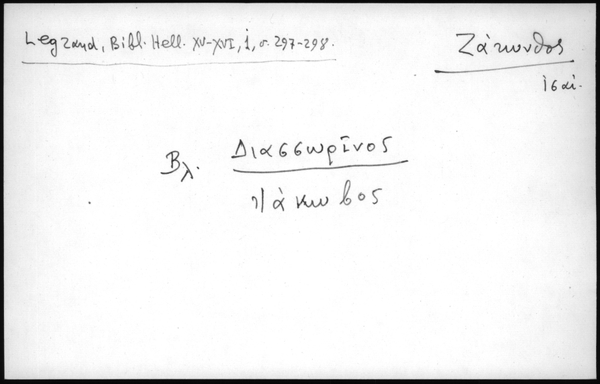 Legrand, Bibl. Hell. XV-XVI, 1, σ. 297-298.
Ζάκυνθος
ις αἰ.
Βλ. Διασσωρῖνος
Ἰάκωβος